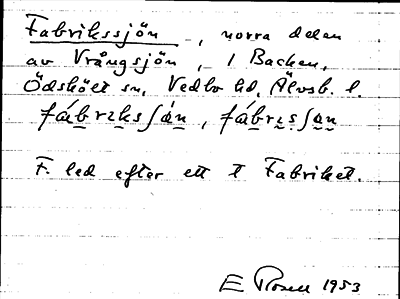 Fabrikssjön, norra delen
av Vrångsjön, i Backen,
Ödskölt sn, Vedbo hd, Älvsb. l.
fábrɪksʃán, fábrɪsʃan
F. led efter ett t Fabriket.
E Rosell 1953